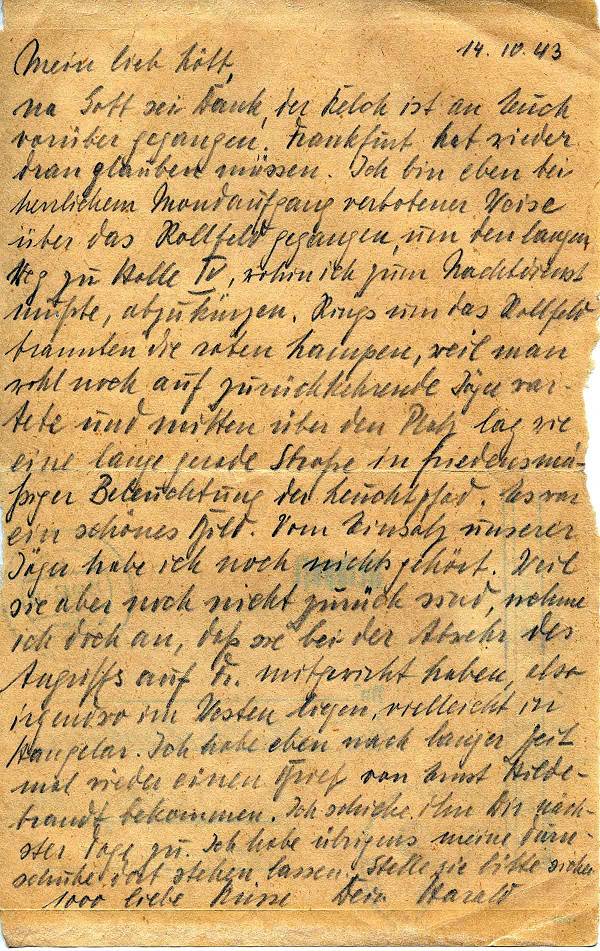 14.10.43
Mein lieb Kött,
na Gott sei Dank, der Kelch ist an Euch
vorüber gegangen. Frankfurt hat wieder
dran glauben müssen. Ich bin eben bei
herrlichem Mondaufgang verbotener Weise
über das Rollfeld gegangen, um den langen
Weg zu Halle IV, wohin ich zum Nachtdienst
mußte, abzukürzen. Rings um das Rollfeld
brannten die roten Lampen, weil man
wohl noch auf zurückkehrende Jäger war-
tete und mitten über den Platz lag wie
eine lange gerade Straße in friedensmä-
ßiger Beleuchtung der Leuchtpfad. Es war
ein schönes Bild. Vom Einsatz unserer
Jäger habe ich noch nichts gehört. Weil
sie aber noch nicht zurück sind, nehme
ich doch an, daß sie bei der Abwehr des
Angriffs auf mitgewirkt haben, also
irgendwo im Westen liegen, vielleicht in
Hangelar. Ich habe eben nach langer Zeit
mal wieder einen Brief von Ernst Hilde-
brandt bekommen. Ich schicke ihn Dir näch-
ster Tage zu. Ich habe übrigens meine Turn-
schuhe dort stehen lassen. Stelle sie bitte sicher
1000 liebe Küsse Dein Harald